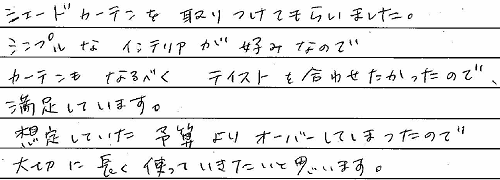 シェードカーテンを取りつけてもらいました。
シンプルなインテリアが好みなので
カーテンもなるべくテイストを合わせたかったので、
満足しています。
想定していた予算よりオーバーしてしまったので
大切に長く使っていきたいと思います。